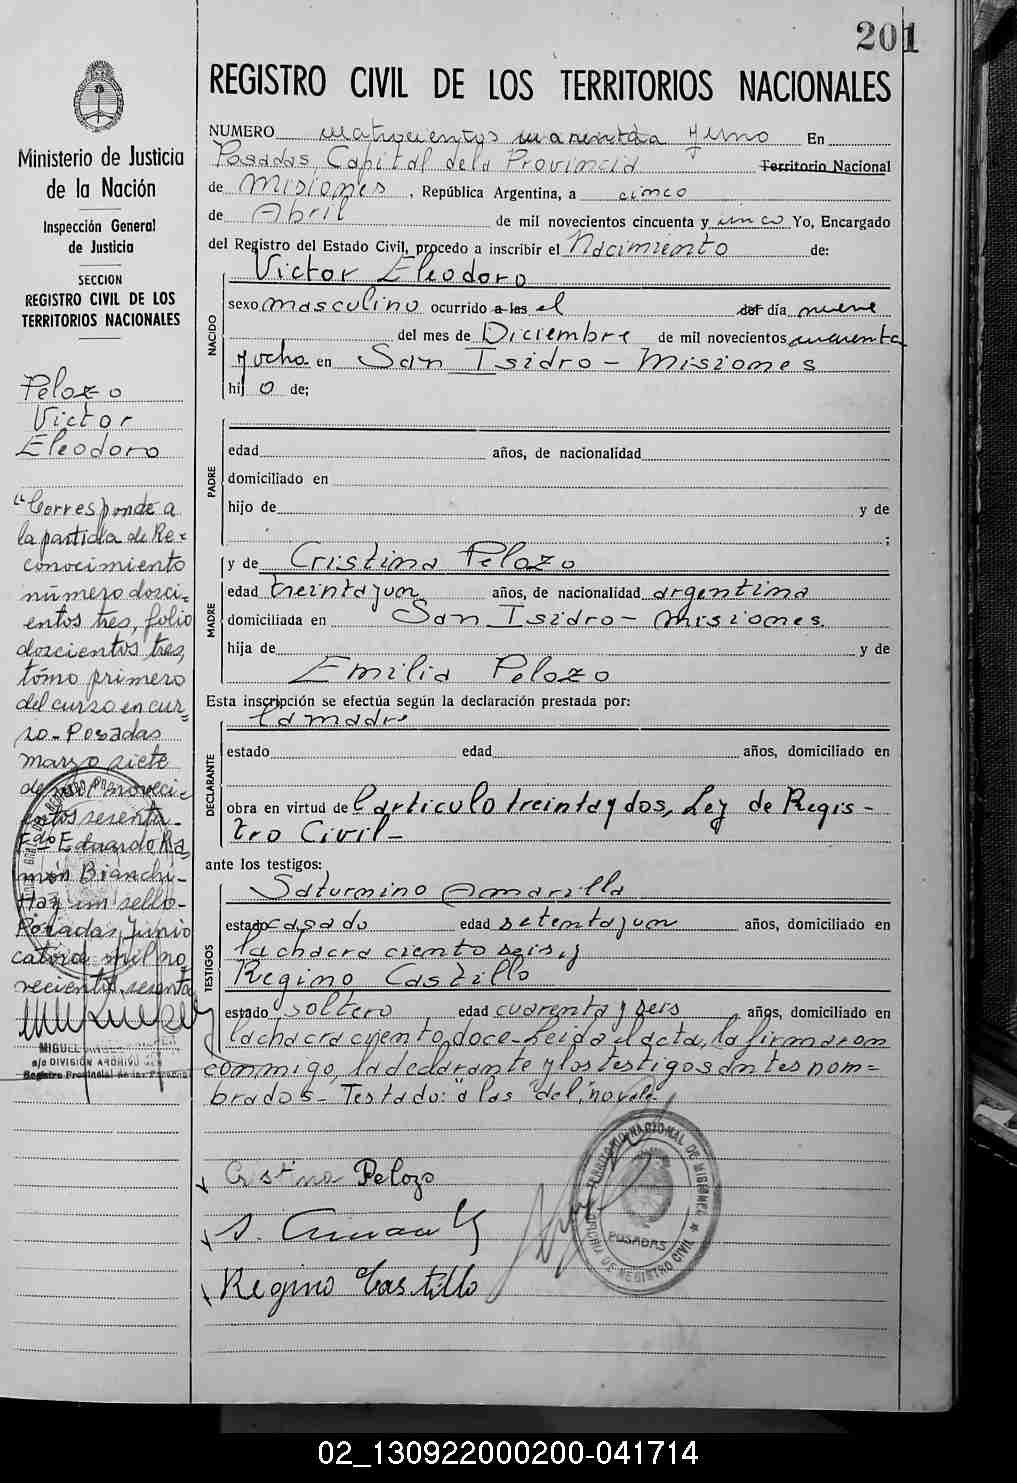 201
REGISTRO CIVIL DE LOS TERRITORIOS NACIONALES
Ministerio de Justicia
de la Nación
Inspección General
de Justicia
SECCION
REGISTRO CIVIL DE LOS
TERRITORIOS NACIONALES
Pelozo
Victor
Eleodoro
"Corresponde a
la partida de Re=
conocimiento
número dosci=
entos tres, folio
doscientos tres,
tomo primero
del curso en cur=
so-Posadas
marzo siete
de mil noveci=
entos sesenta-
Fdo Eduardo Ra
món Bianchi-
Hay un sello-
Posadas, Junio
catorce mil no
vecientos sesenta
MIGUEL
a/c DIVISIÓN ARCHIVO
Registro Provincial de las Personas
NUMERO cuatrocientos cuarenta y uno En
Posadas, Capital de la Provincia Territorio Nacional
de Misiones, República Argentina, a cinco
de Abril de mil novecientos cincuenta y cinco Yo, Encargado
del Registro del Estado Civil, procedo a inscribir el Nacimiento de:
Victor Eleodoro
NACIDO
sexo masculino ocurrido a las el del día nueve
del mes de Diciembre de mil novecientos cuarenta
y ocho en San Isidro - Misiones
hijo de;
PADRE
edad años, de nacionalidad
domiciliado en
hijo de y de
;
MADRE
y de Cristina Pelozo
edad treinta y un años, de nacionalidad argentina
domiciliada en San Isidro - Misiones.
hija de y de
Emilia Pelozo
Esta inscripción se efectúa según la declaración prestada por:
la madre
DECLARANTE
estado edad años, domiciliado en
obra en virtud del articulo treinta y dos, Ley de Regis-
tro Civil-
ante los testigos:
TESTIGOS
Saturnino Amarilla
estado casado edad setenta y un años, domiciliado en
la chacra ciento seis, y
Regino Castillo
estado soltero edad cuarenta y seis años, domiciliado en
la chacra ciento doce-Leida el acta, la firmaron
conmigo, la declarante y los testigos antes nom=
brados- Testado: "a las "del", no vale-
Cristina Pelozo
Regino Castillo
TERRITORIO NACIONAL DE MISIONES
POSADAS
DE REGISTRO CIVIL
02_130922000200-041714